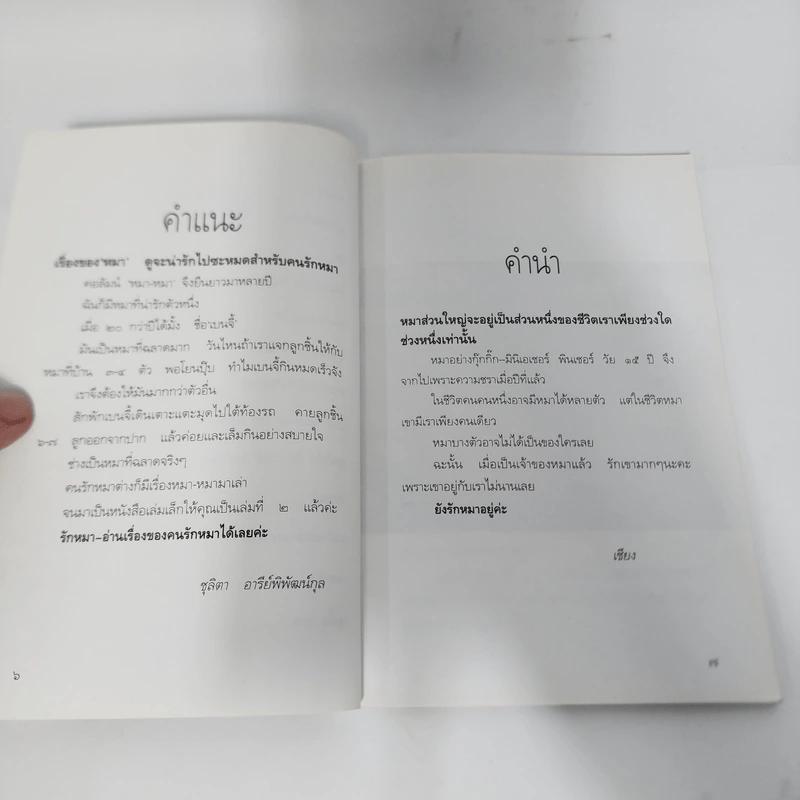 คำแนะ
เรื่องของ 'หมา' ดูจะน่ารักไปซะหมดสำหรับคนรักหมา
คอลัมน์ 'หมา-หมา' จึงยืนยาวมาหลายปี
ฉันก็มีหมาที่น่ารักตัวหนึ่ง
เมื่อ ๒๐ กว่าปีได้มั้ง ชื่อ'เบนจี้'
มันเป็นหมาที่ฉลาดมาก วันไหนถ้าเราแจกลูกชิ้นให้กับ
หมาที่บ้าน ๓-๔ ตัว พอโยนปุ๊บ ทำไมเบนจี้กินหมดเร็วจัง
เราจึงต้องให้มันมากกว่าตัวอื่น
สักพักเบนจี้เดินเตาะแตะมุดไปใต้ท้องรถ คายลูกชิ้น
๖-๗ ลูกออกจากปาก แล้วค่อยและเล็มกินอย่างสบายใจ
ช่างเป็นหมาที่ฉลาดจริงๆ
คนรักหมาต่างก็มีเรื่องหมา-หมามาเล่า
จนมาเป็นหนังสือเล่มเล็กให้คุณเป็นเล่มที่ ๒ แล้วค่ะ
รักหมา-อ่านเรื่องของคนรักหมาได้เลยค่ะ
ชุลิตา อารีย์พิพัฒน์กุล
๖
คำนำ
หมาส่วนใหญ่จะอยู่เป็นส่วนหนึ่งของชีวิตเราเพียงช่วงใด
ช่วงหนึ่งเท่านั้น
หมาอย่างกุ๊กกิ๊ก-มินิเอเชอร์ พินเชอร์ วัย ๑๕ ปี จึง
จากไปเพราะความชราเมื่อปีที่แล้ว
ในชีวิตคนคนหนึ่งอาจมีหมาได้หลายตัว แต่ในชีวิตหมา
เขามีเราเพียงคนเดียว
หมาบางตัวอาจไม่ได้เป็นของใครเลย
ฉะนั้น เมื่อเป็นเจ้าของหมาแล้ว รักเขามากๆนะคะ
เพราะเขาอยู่กับเราไม่นานเลย
ยังรักหมาอยู่ค่ะ
เชียง
๗